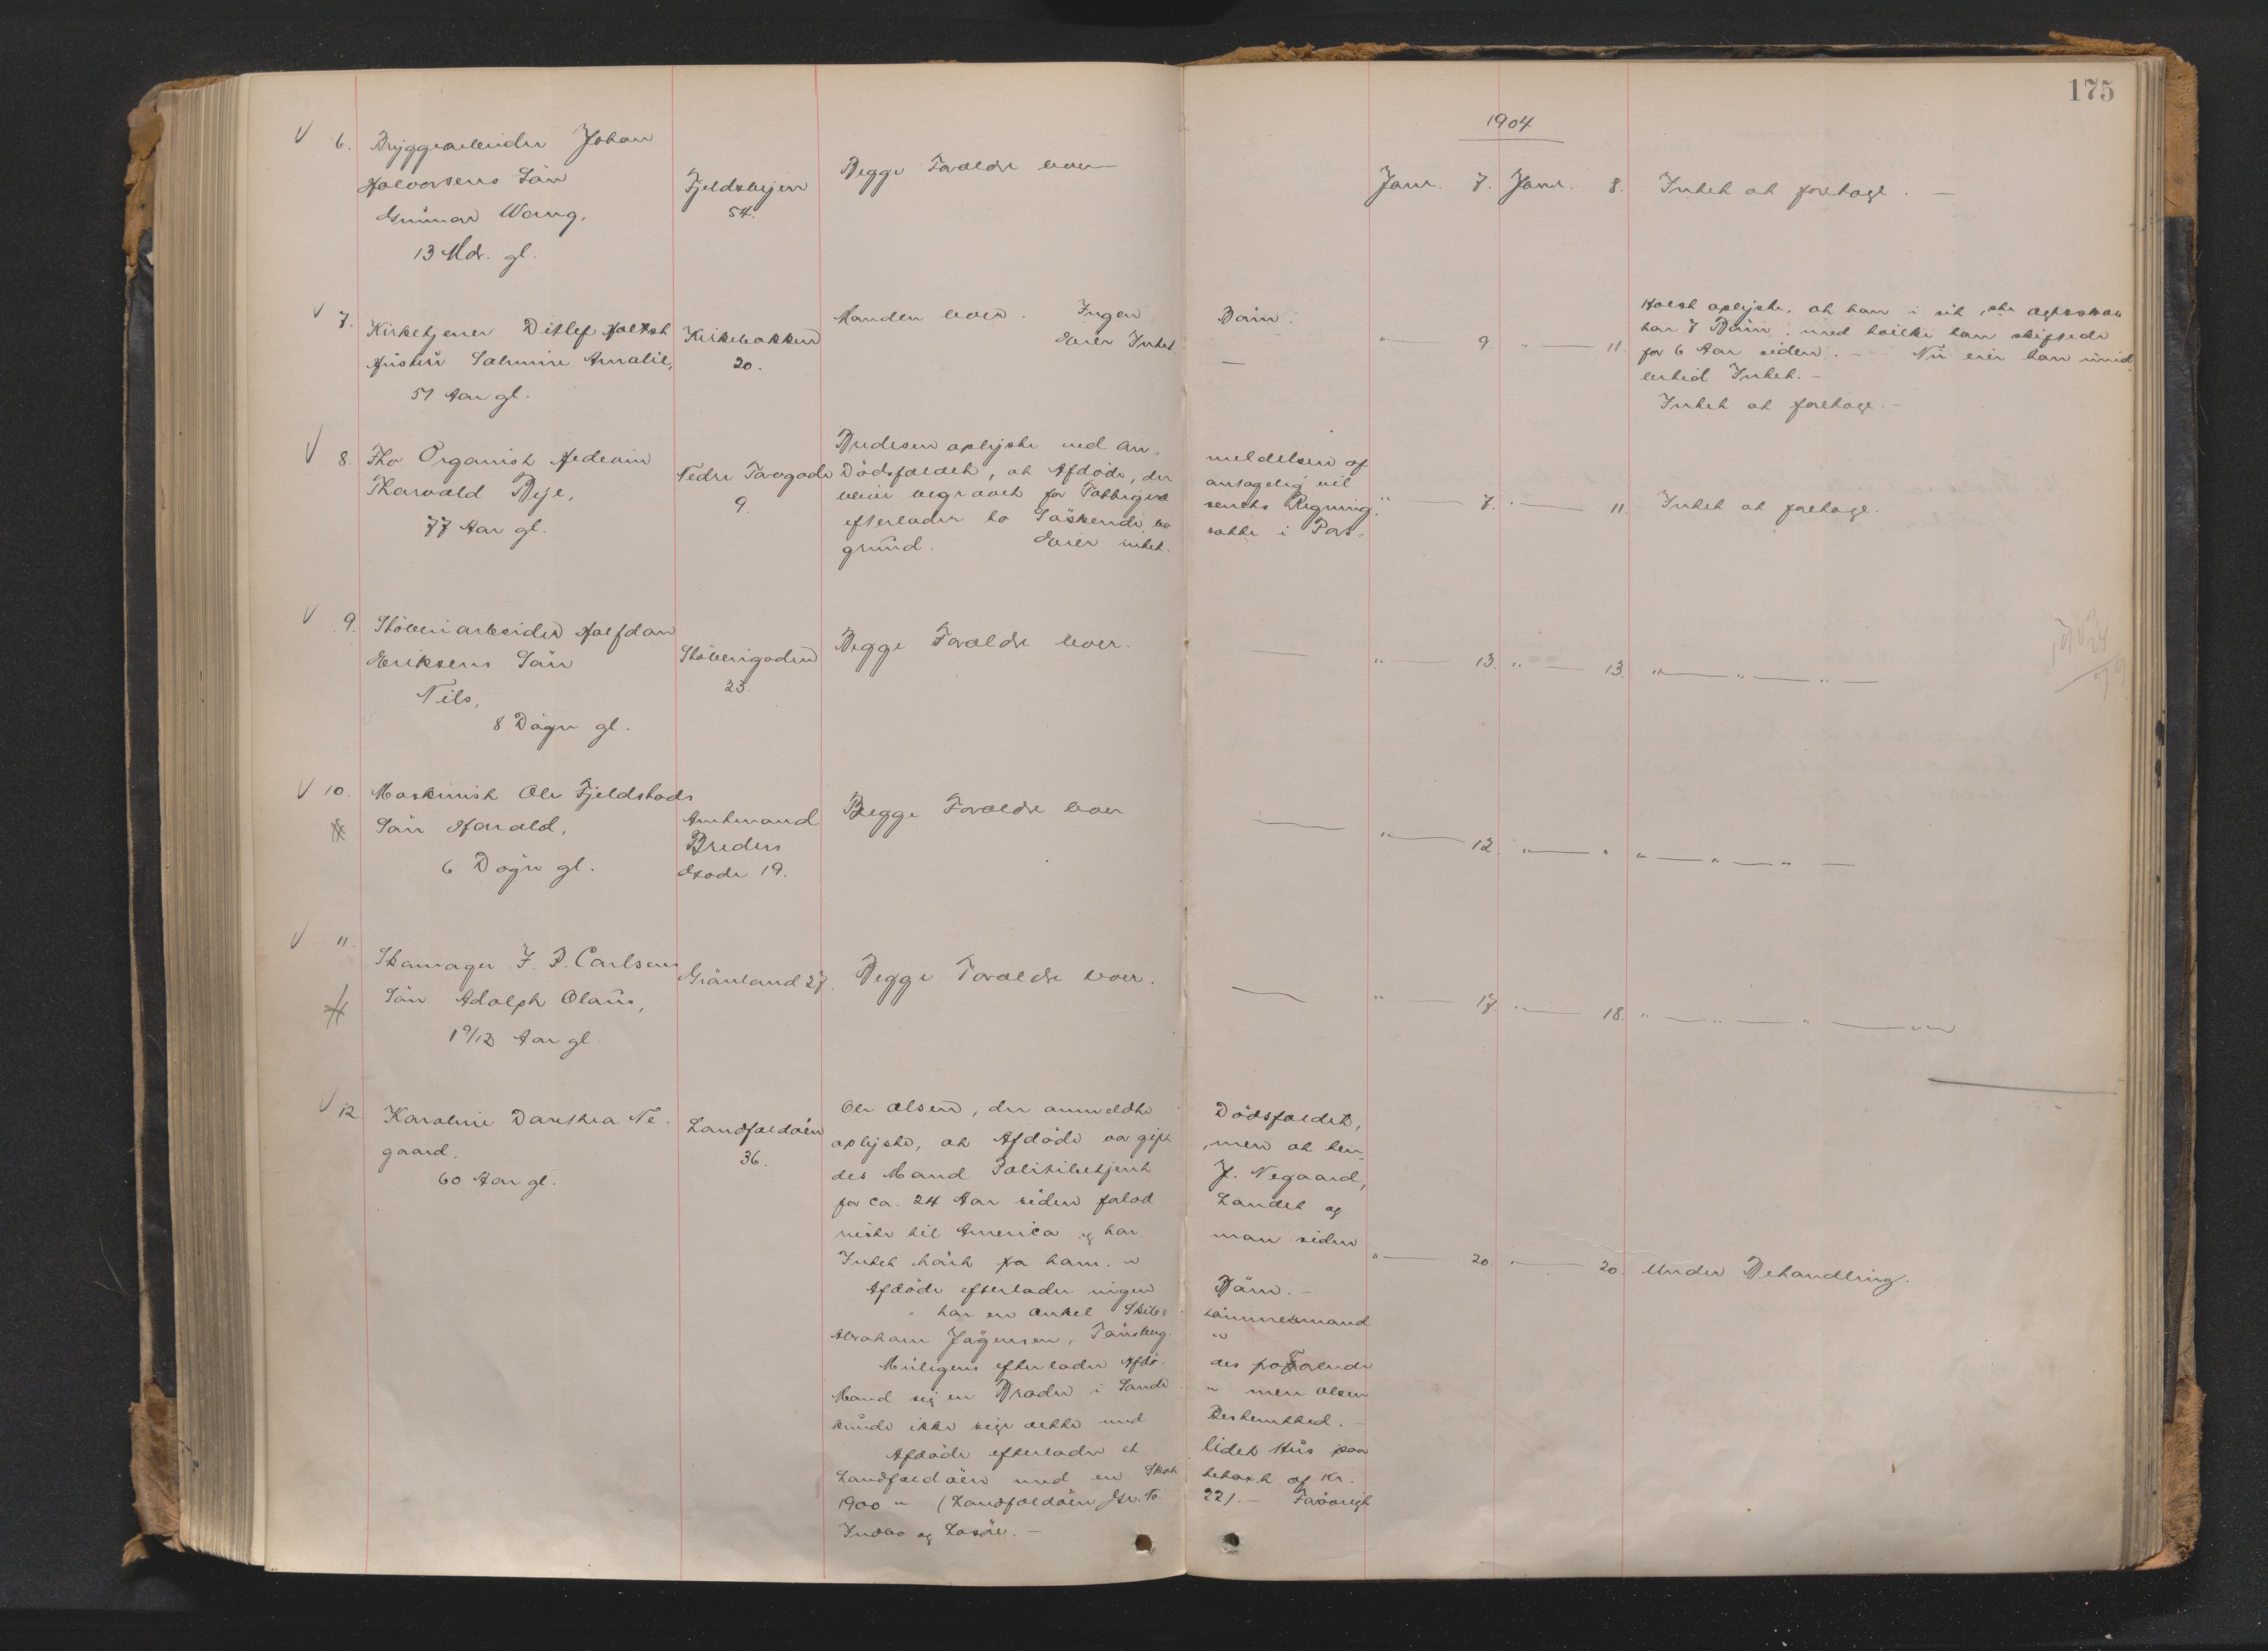 175
1904
6. Bryggearbeider Johan
Halvorsens Sön
Gunnar Wang,
13 Mdr. gl.
Fjeldvejen
54.
Begge Forældre lever
Janr. 7. Janr. 8. Intet at foretage. —
7. Kirketjener Ditlef Holtst
Hustru Salmine Amalie,
51 Aar gl.
Kirkebakken
20.
Manden lever. Ingen Börn.
Eier Intet. —
" — 9. " — 11.
Holst oplyste, at han i sit 1ste Ægteskab
har 7 Börn, med hvilke han skiftede
for 6 Aar siden. — Nu eier han imid-
lertid Intet. —
Intet at foretage. —
8. Fhv. Organist Hedevin
Thorvald Beje,
77 Aar gl.
Nedre Torvgade
9.
oplyste ved An- meldelsen af
Dödsfaldet, at Afdöde, der antagelig vil
blive begravet for Fattigvæ- senets Regning,
efterlader to Söskende, bo- satte i Pors-
grund. Eier intet.
" — 7. " — 11. Intet at foretage.
9. Stöberiarbeider Halfdan
Eriksens Sön
Nils,
8 Dögn gl.
Stöberigaden
23.
Begge Forældre lever.
— " — 13. " — 13. " — " — " —
10. Maskinist Ole Fjeldstads
Sön Harald,
6 Dögn gl.
Amtmand
Breders
Gade 19.
Begge Forældre lever
— " — 12. " — " " — " — " —
11.
Skomager J. P. Carlsens
Sön Adolph Olaus,
1 9/12 Aar gl.
Grönland 27.
Begge Forældre lever.
— " — 17. " — 18. " — " — " —
12 Karoline Dorthea Ne-
gaard,
60 Aar gl.
Landfaldöen
36.
Ole Olsen, der anmeldte Dödsfaldet,
oplyste, at Afdöde var gift, men at hen-
des Mand Politibetjent J. Negaard,
for ca. 24 Aar siden forlod Landet og
reiste til America og har man siden
Intet hört fra ham. "
Afdöde efterlader ingen Börn. —
" har en Onkel Skibstömmermand
Abraham Jörgensen, Tönsberg. "
Muligens efterlader Afdö- des
Mand sig en Broder i Sande " men Olsen
kunde ikke sige dette med Bestemthed. —
Afdöde efterlader et lidet Hus paa
Landfaldöen med en Skat- tetaxt af Kr.
1900 " (Landfaldöen Gr. No. 221. — Forövrigt
Indbo og Lösöre. —
" — 20. " — 20. Under Behandling.